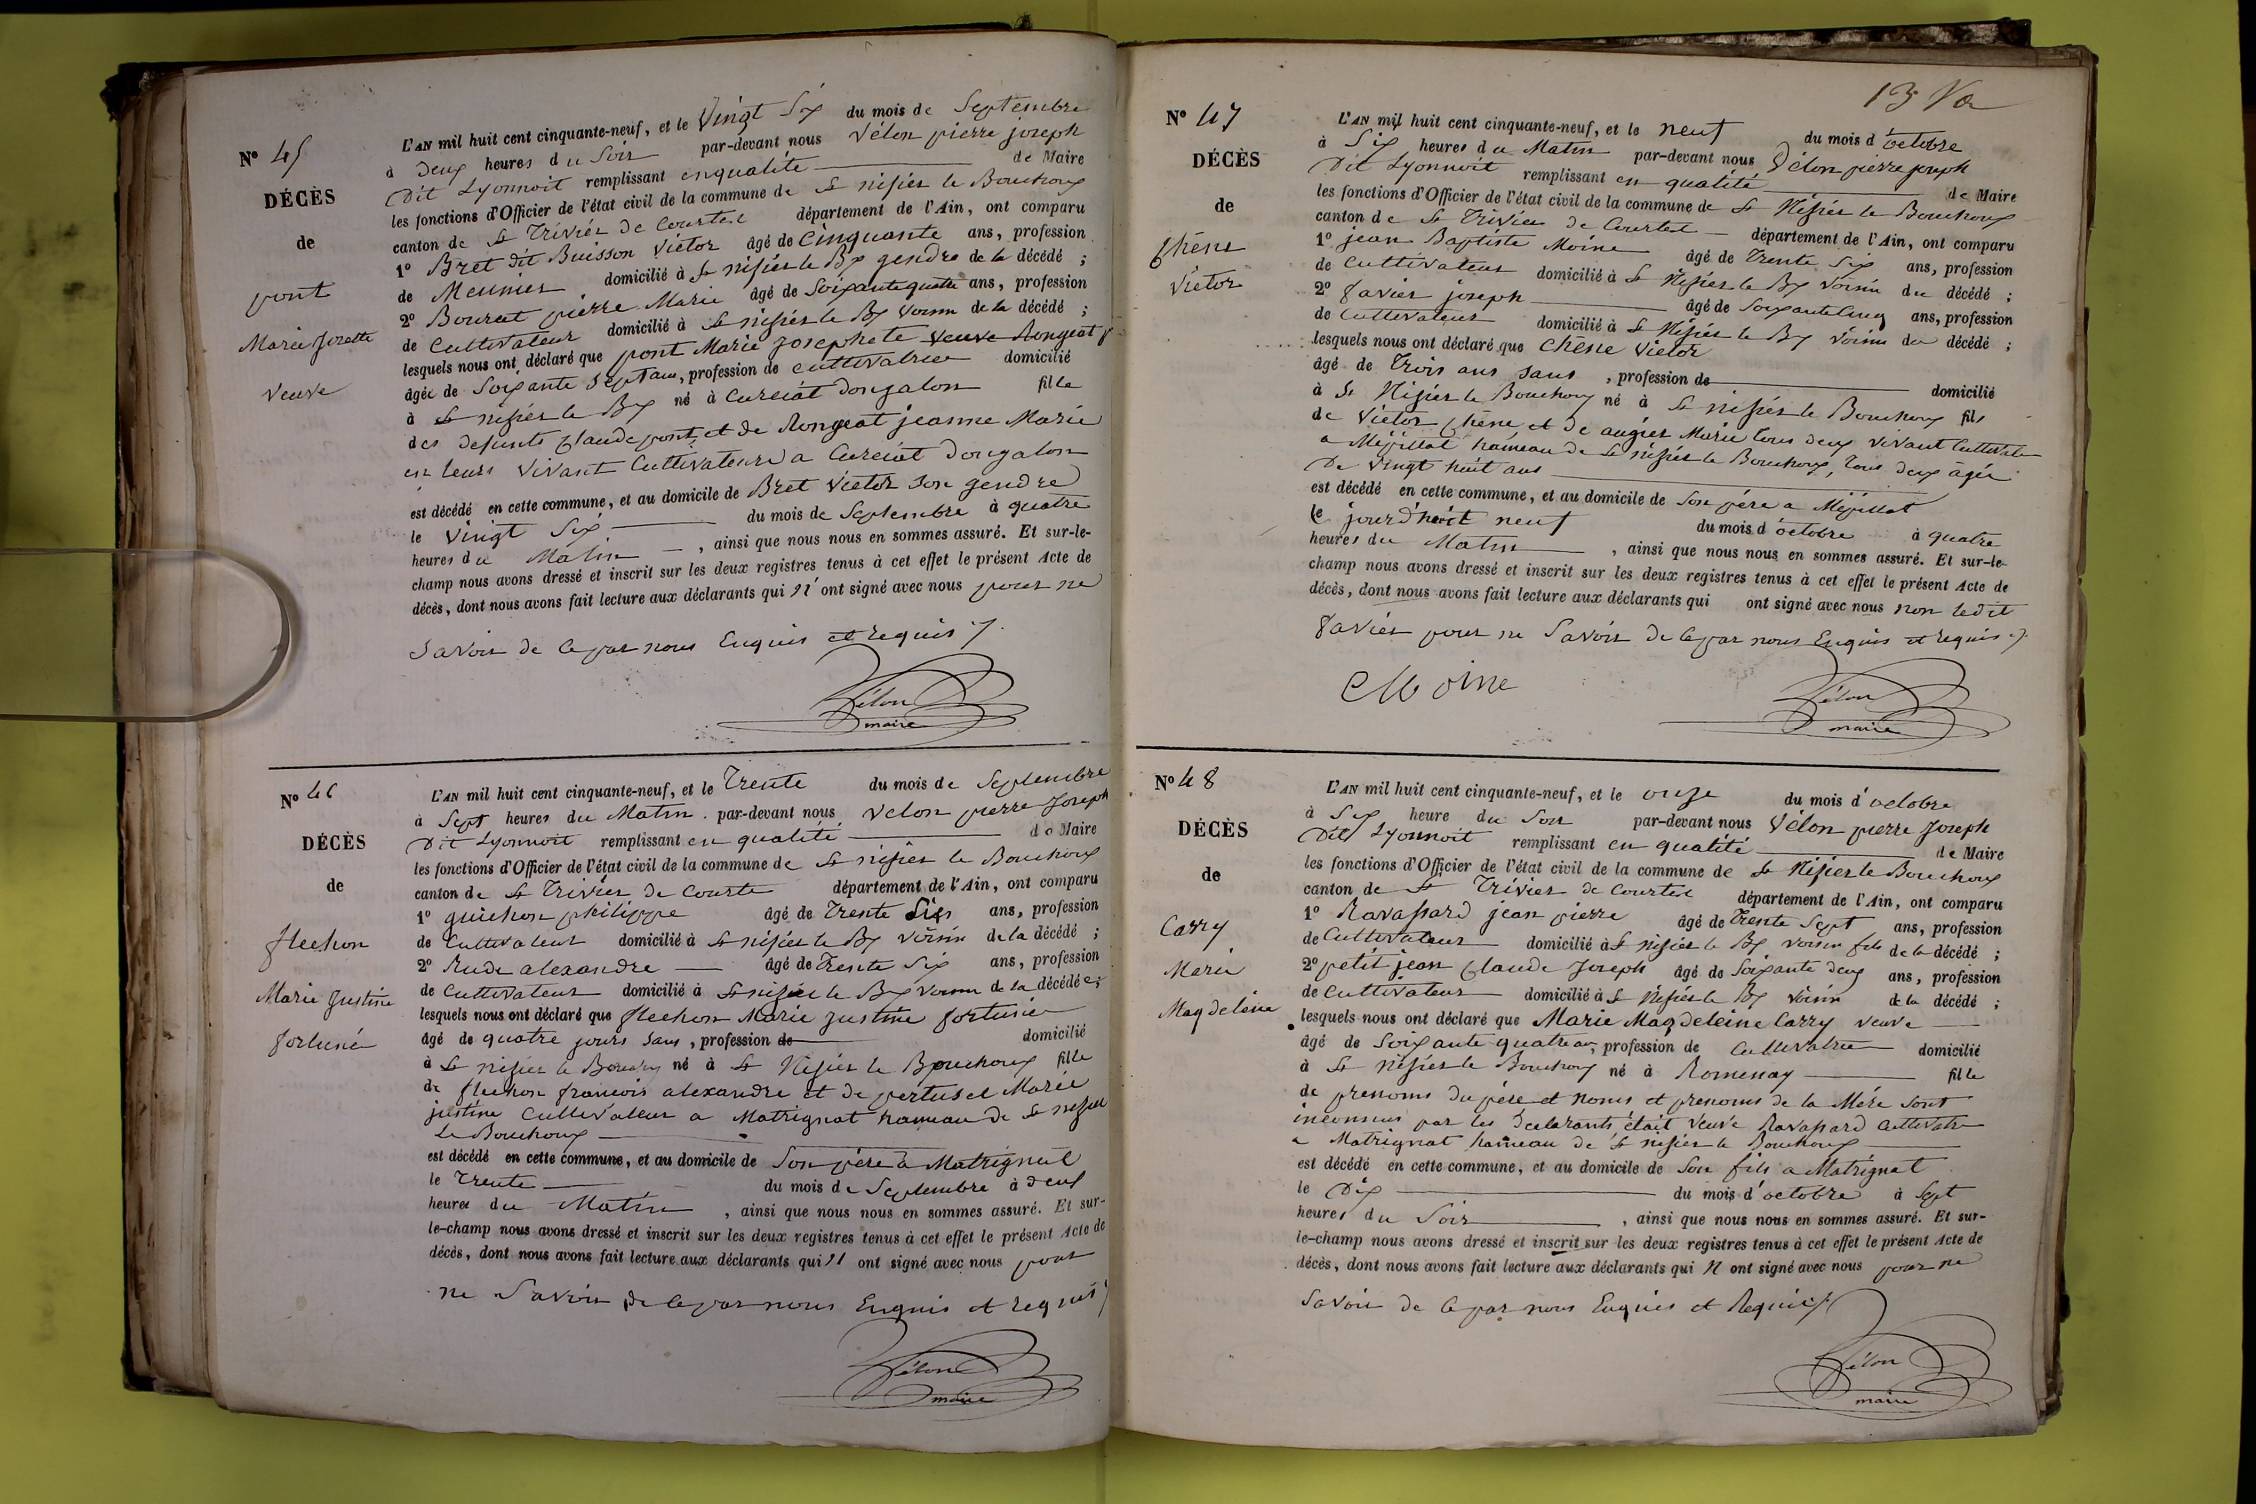 N° 45
DÉCÈS
de
pont
Marie Josette
veuve
L'AN mil huit cent cinquante-neuf, et le Vingt Six du mois de Septembre
à deux heures du Soir par-devant nous Vélon pierre joseph
Dit Lyonnoit remplissant en qualité de Maire
les fonctions d'Officier de l'état civil de la commune de St nisier le Bouchoux
canton de St Trivier de Courtes département de l'Ain, ont comparu
1° Bret dit Buisson Victor âgé de Cinquante ans, profession
de Meunier domicilié à St nisier le Bx gendre de la décédé ;
2° Bourcet pierre Marie âgé de Soixante quatre ans, profession
de Cultivateur domicilié à St nisier le Bx voisin de la décédé ;
lesquels nous ont déclaré que pont Marie Josephete veuve Rongeat
âgée de Soixante Sept ans, profession de cultivatrice domicilié
à St nisier le Bx né à Curciat dongalon fille
des defunts Claude pont et de Rongeat jeanne Marie
en leurs vivant Cultivateurs a Curciat Dongalon
est décédé en cette commune, et au domicile de Bret Victor son gendre
le Vingt Six du mois de Septembre à quatre
heures du Matin , ainsi que nous nous en sommes assuré. Et sur-le-
champ nous avons dressé et inscrit sur les deux registres tenus à cet effet le présent Acte de
décès, dont nous avons fait lecture aux déclarants qui n' ont signé avec nous pour ne
Savoir de ce par nous Enquis et requis
Vélon
maire
N° 46
DÉCÈS
de
flechon
Marie Justine
fortunée
L'AN mil huit cent cinquante-neuf, et le Trente du mois de Septembre
à Sept heures du Matin par-devant nous Velon pierre Joseph
Dit Lyonnoit remplissant en qualité de Maire
les fonctions d'Officier de l'état civil de la commune de St nisier le Bouchoux
canton de St Trivier de Courte département de l'Ain, ont comparu
1° guichon philippe âgé de Trente Six ans, profession
de Cultivateur domicilié à St nisier le Bx voisin de la décédé ;
2° Rude alexandre âgé de Trente Six ans, profession
de Cultivateur domicilié à St nisier le Bx voisin de la décédée ;
lesquels nous ont déclaré que flechon Marie justine fortunée
âgé de quatre jours Sans , profession de domicilié
à St nisier le Bouchoux né à St Nisier le Bouchoux fille
de flechon francois alexandre et de pertuset Marie
justine Cultivateur a Matrignat hameau de St nisier
Le Bouchoux
est décédé en cette commune, et au domicile de Son père a Matrignat
le Trente du mois de Septembre à deux
heures du Matin , ainsi que nous nous en sommes assuré. Et sur-
le-champ nous avons dressé et inscrit sur les deux registres tenus à cet effet le présent Acte de
décès, dont nous avons fait lecture aux déclarants qui n ont signé avec nous pour
ne Savoir de ce par nous Enquis et requis
Vélon
maire
13
N° 47
DÉCÈS
de
Chêne
Victor
L'AN mil huit cent cinquante-neuf, et le neuf du mois d'octobre
à Six heures du Matin par-devant nous Vélon pierre joseph
Dit Lyonnoit remplissant en qualité de Maire
les fonctions d'Officier de l'état civil de la commune de St Nisier le Bouchoux
canton de St Trivier de Courtes département de l'Ain, ont comparu
1° jean Baptiste Moine âgé de Trente Six ans, profession
de Cultivateur domicilié à St Nisier le Bx voisin du décédé ;
2° favier joseph âgé de Soixante Cinq ans, profession
de Cultivateur domicilié à St Nisier le Bx voisin du décédé ;
lesquels nous ont déclaré que Chêne Victor
âgé de Trois ans Sans , profession de domicilié
à St Nisier le Bouchoux né à St nisier le Bouchoux fils
de Victor Chêne et de augier Marie tous deux vivant Cultivateur
a Mépillat hameau de St nisier le Bouchoux, tous deux agée
De Vingt huit ans
est décédé en cette commune, et au domicile de Son père a Mépillat
le jourd'huit neuf du mois d'octobre à quatre
heures du Matin , ainsi que nous nous en sommes assuré. Et sur-le-
champ nous avons dressé et inscrit sur les deux registres tenus à cet effet le présent Acte de
décès, dont nous avons fait lecture aux déclarants qui ont signé avec nous non ledit
favier pour ne Savoir de ce par nous Enquis et requis
Moine
Vélon
maire
N° 48
DÉCÈS
de
Carry
Marie
Magdeleine
L'AN mil huit cent cinquante-neuf, et le onze du mois d'octobre
à Six heure du Soir par-devant nous Vélon pierre Joseph
Dit Lyonnoit remplissant en qualité de Maire
les fonctions d'Officier de l'état civil de la commune de St Nisier le Bouchoux
canton de St Trivier de Courtes département de l'Ain, ont comparu
1° Ravassard jean pierre âgé de Trente Sept ans, profession
de Cultivateur domicilié à St nisier le Bx voisin fils de la décédé ;
2° petit jean Claude Joseph âgé de Soixante deux ans, profession
de Cultivateur domicilié à St Nisier le Bx voisin de la décédé ;
lesquels nous ont déclaré que Marie Magdeleine Carry veuve
âgé de Soixante quatre ans, profession de Cultivatrice domicilié
à St Nisier le Bouchoux né à Romenay fille
de prenoms du père et noms et prenoms de la Mére sont
inconnus par les declarants était veuve Ravassard Cultivatrice
a Matrignat hameau de St nisier le Bouchoux
est décédé en cette commune, et au domicile de Son fils a Matrignat
le Dix du mois d'octobre à Sept
heures du Soir , ainsi que nous nous en sommes assuré. Et sur-
le-champ nous avons dressé et inscrit sur les deux registres tenus à cet effet le présent Acte de
décès, dont nous avons fait lecture aux déclarants qui n ont signé avec nous pour ne
Savoir de ce par nous Enquis et Requis
Vélon
maire